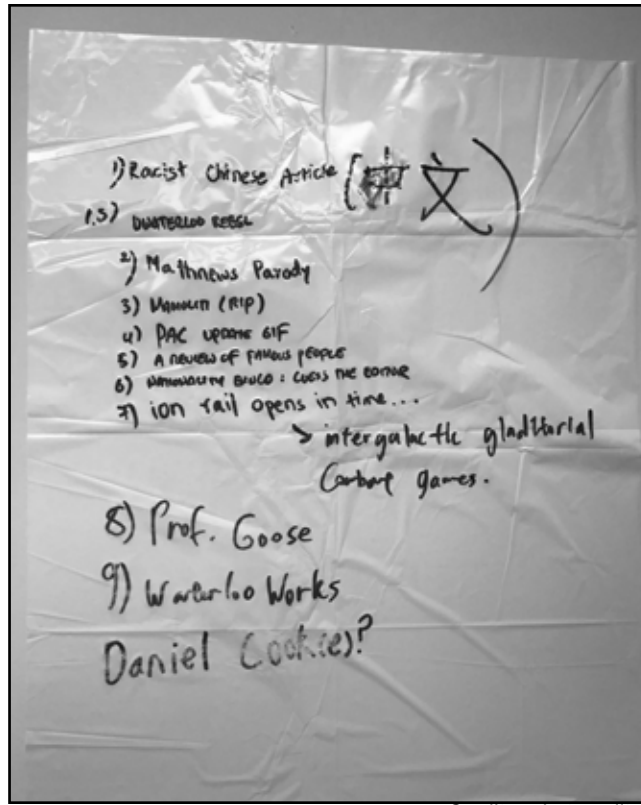 1) Racist Chinese Article (中文)
1.5) UWATERLOO REBEL
2) Mathnews Parody
3) (RIP)
4) PAC UPDATE GIF
5) A REVIEW OF FAMOUS PEOPLE
6) BINGO: GUESS THE EDITOR
7) ion rail opens in time...
> intergalactic gladitorial
games.
8) Prof. Goose
9) Waterloo Works
Daniel Cook(ie)?